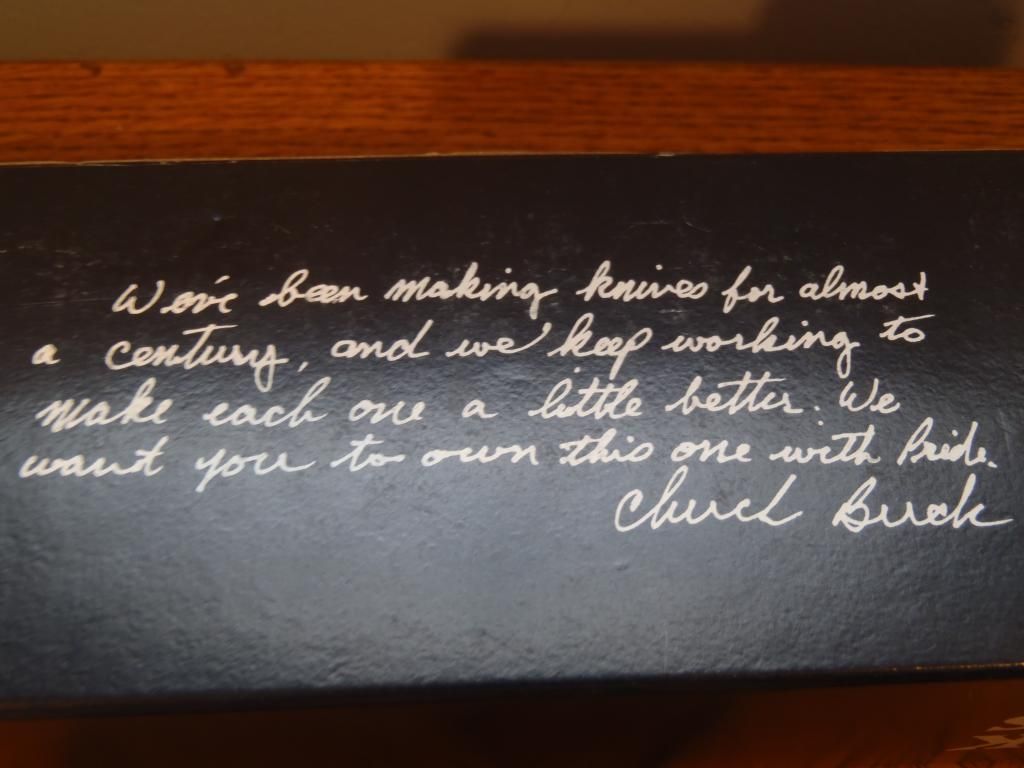 We've been making knives for almost
a century, and we keep working to
make each one a little better. We
want you to own this one with Pride.
Chuck Buck